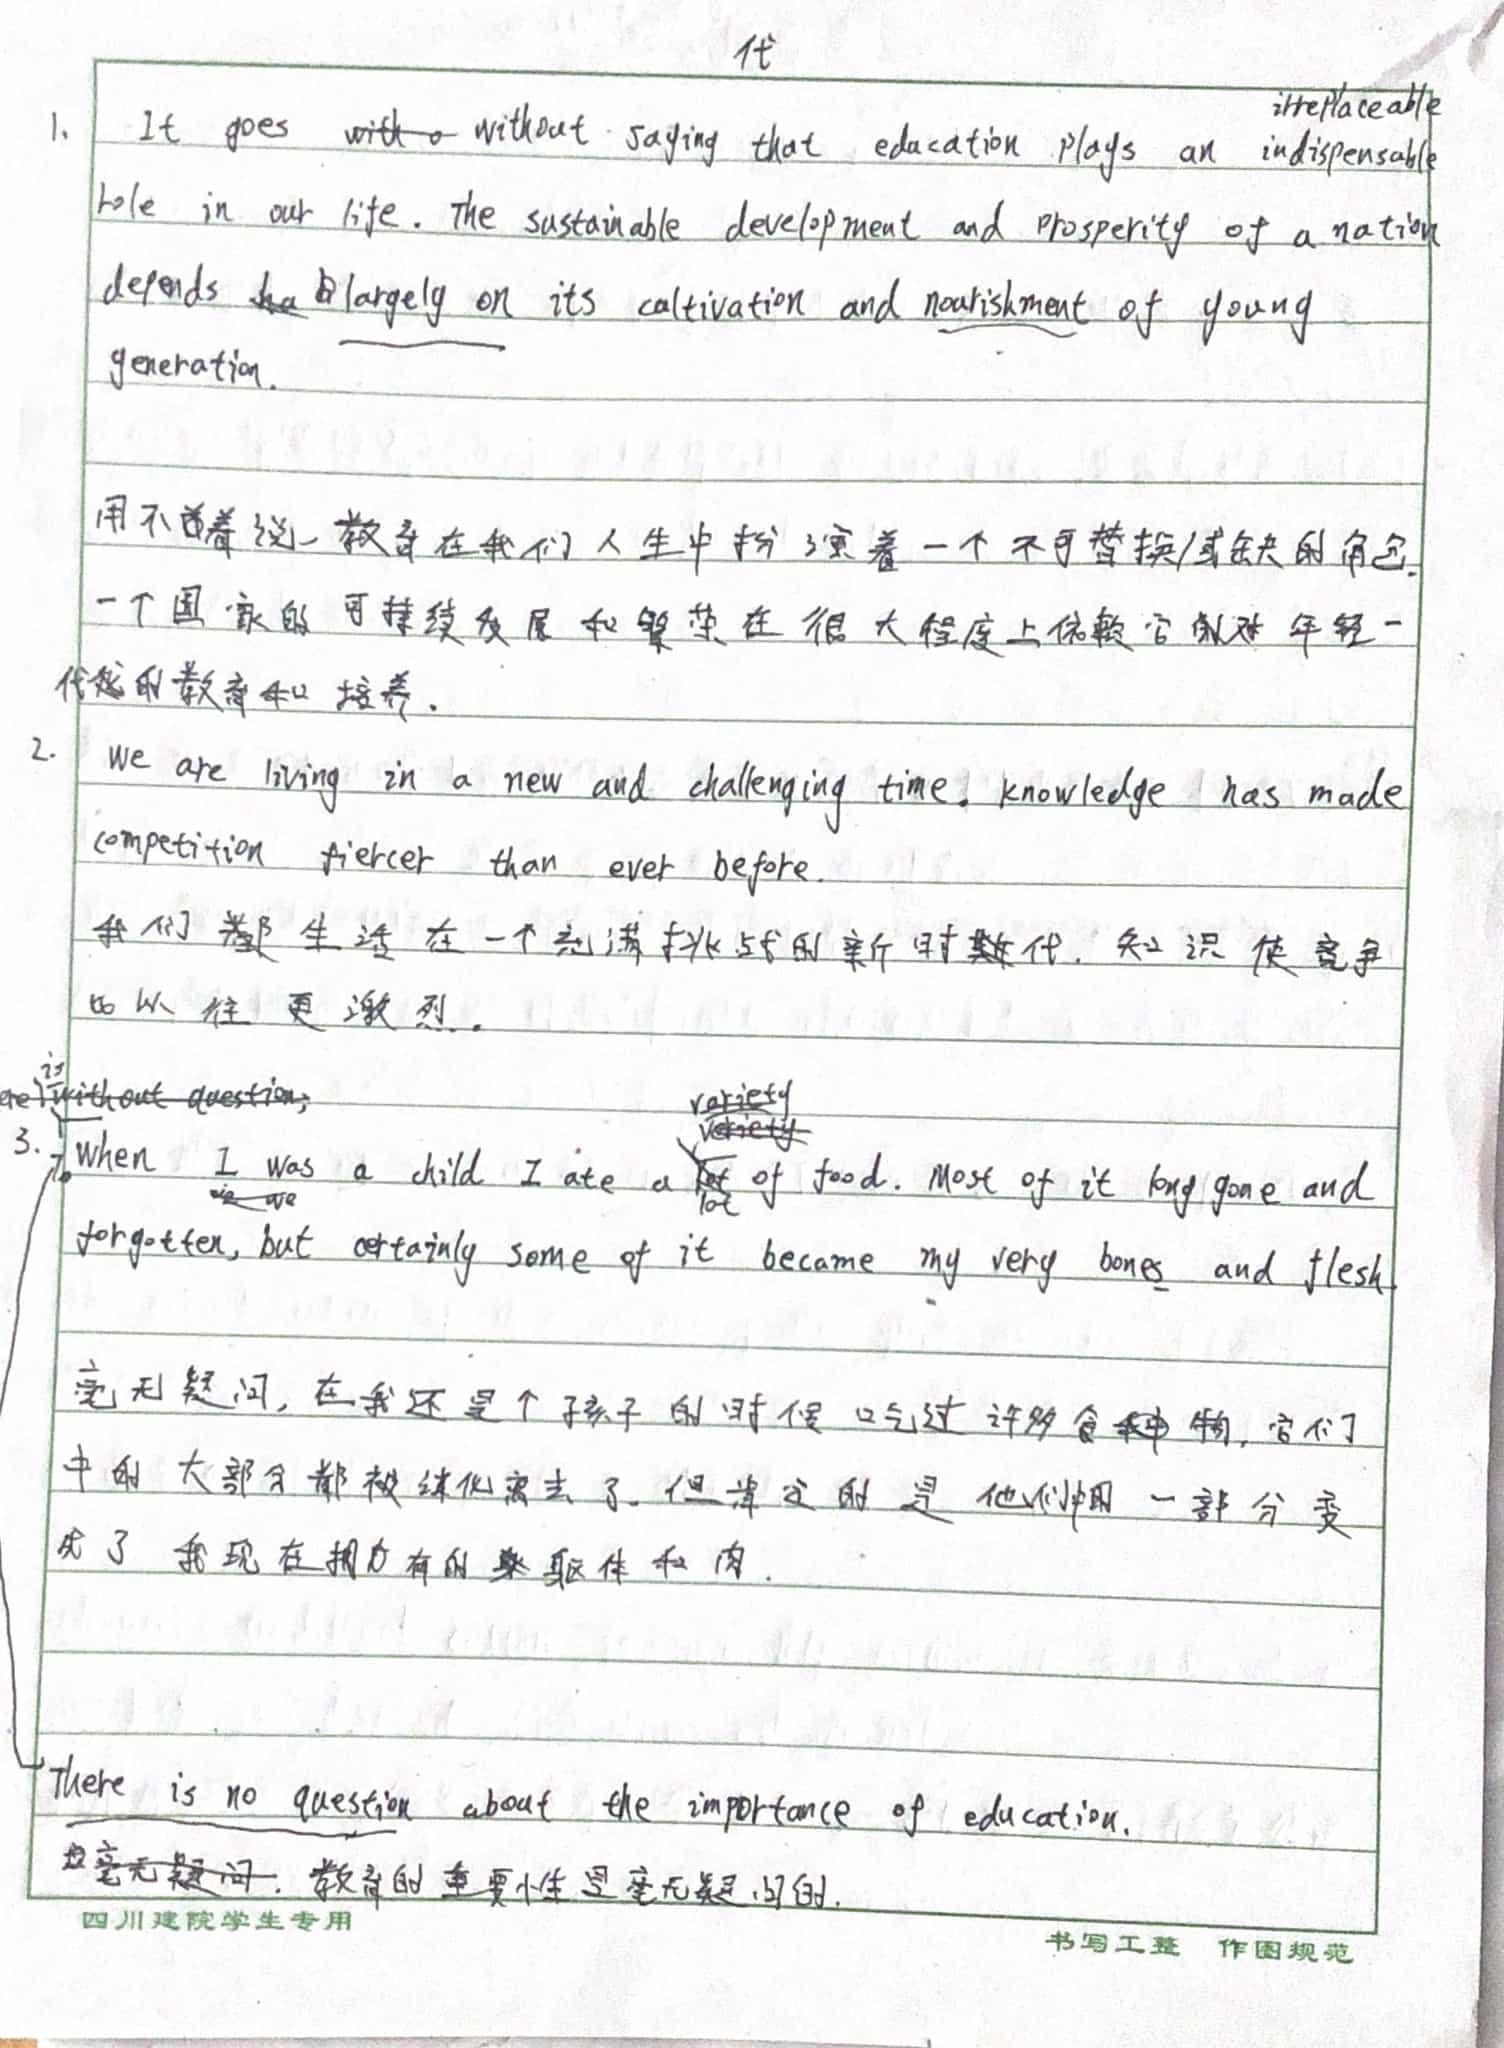 代
irreplaceable
1. It goes with o without saying that education plays an indispensable
role in our life. The sustainable development and prosperity of a nation
depends largely on its caltivation and nourishment of young
generation.
用不着说,教育在我们人生中扮演着一个不可替换/或缺的角色.
一个国家的可持续发展和繁荣在很大程度上依赖它对年轻一
代的教育和培养.
2. We are living in a new and challenging time. knowledge has made
competition fiercer than ever before.
我们都生活在一个充满挑战的新时代. 知识使竞争
比以往更激烈.
is
without question,
variety
veriety
3. When I was a child I ate a lot of food. Most of it long gone and
lot
forgotten, but certainly some of it became my very bones and flesh
毫无疑问, 在我还是个孩子的时候吃过许多食物, 它们
中的大部分都被离去了. 但肯定的是他们中一部分变
成了我现在拥有的躯体和肉.
There is no question about the importance of education.
毫无疑问. 教育的重要性是毫无疑问的.
四川建院学生专用
书写工整 作图规范